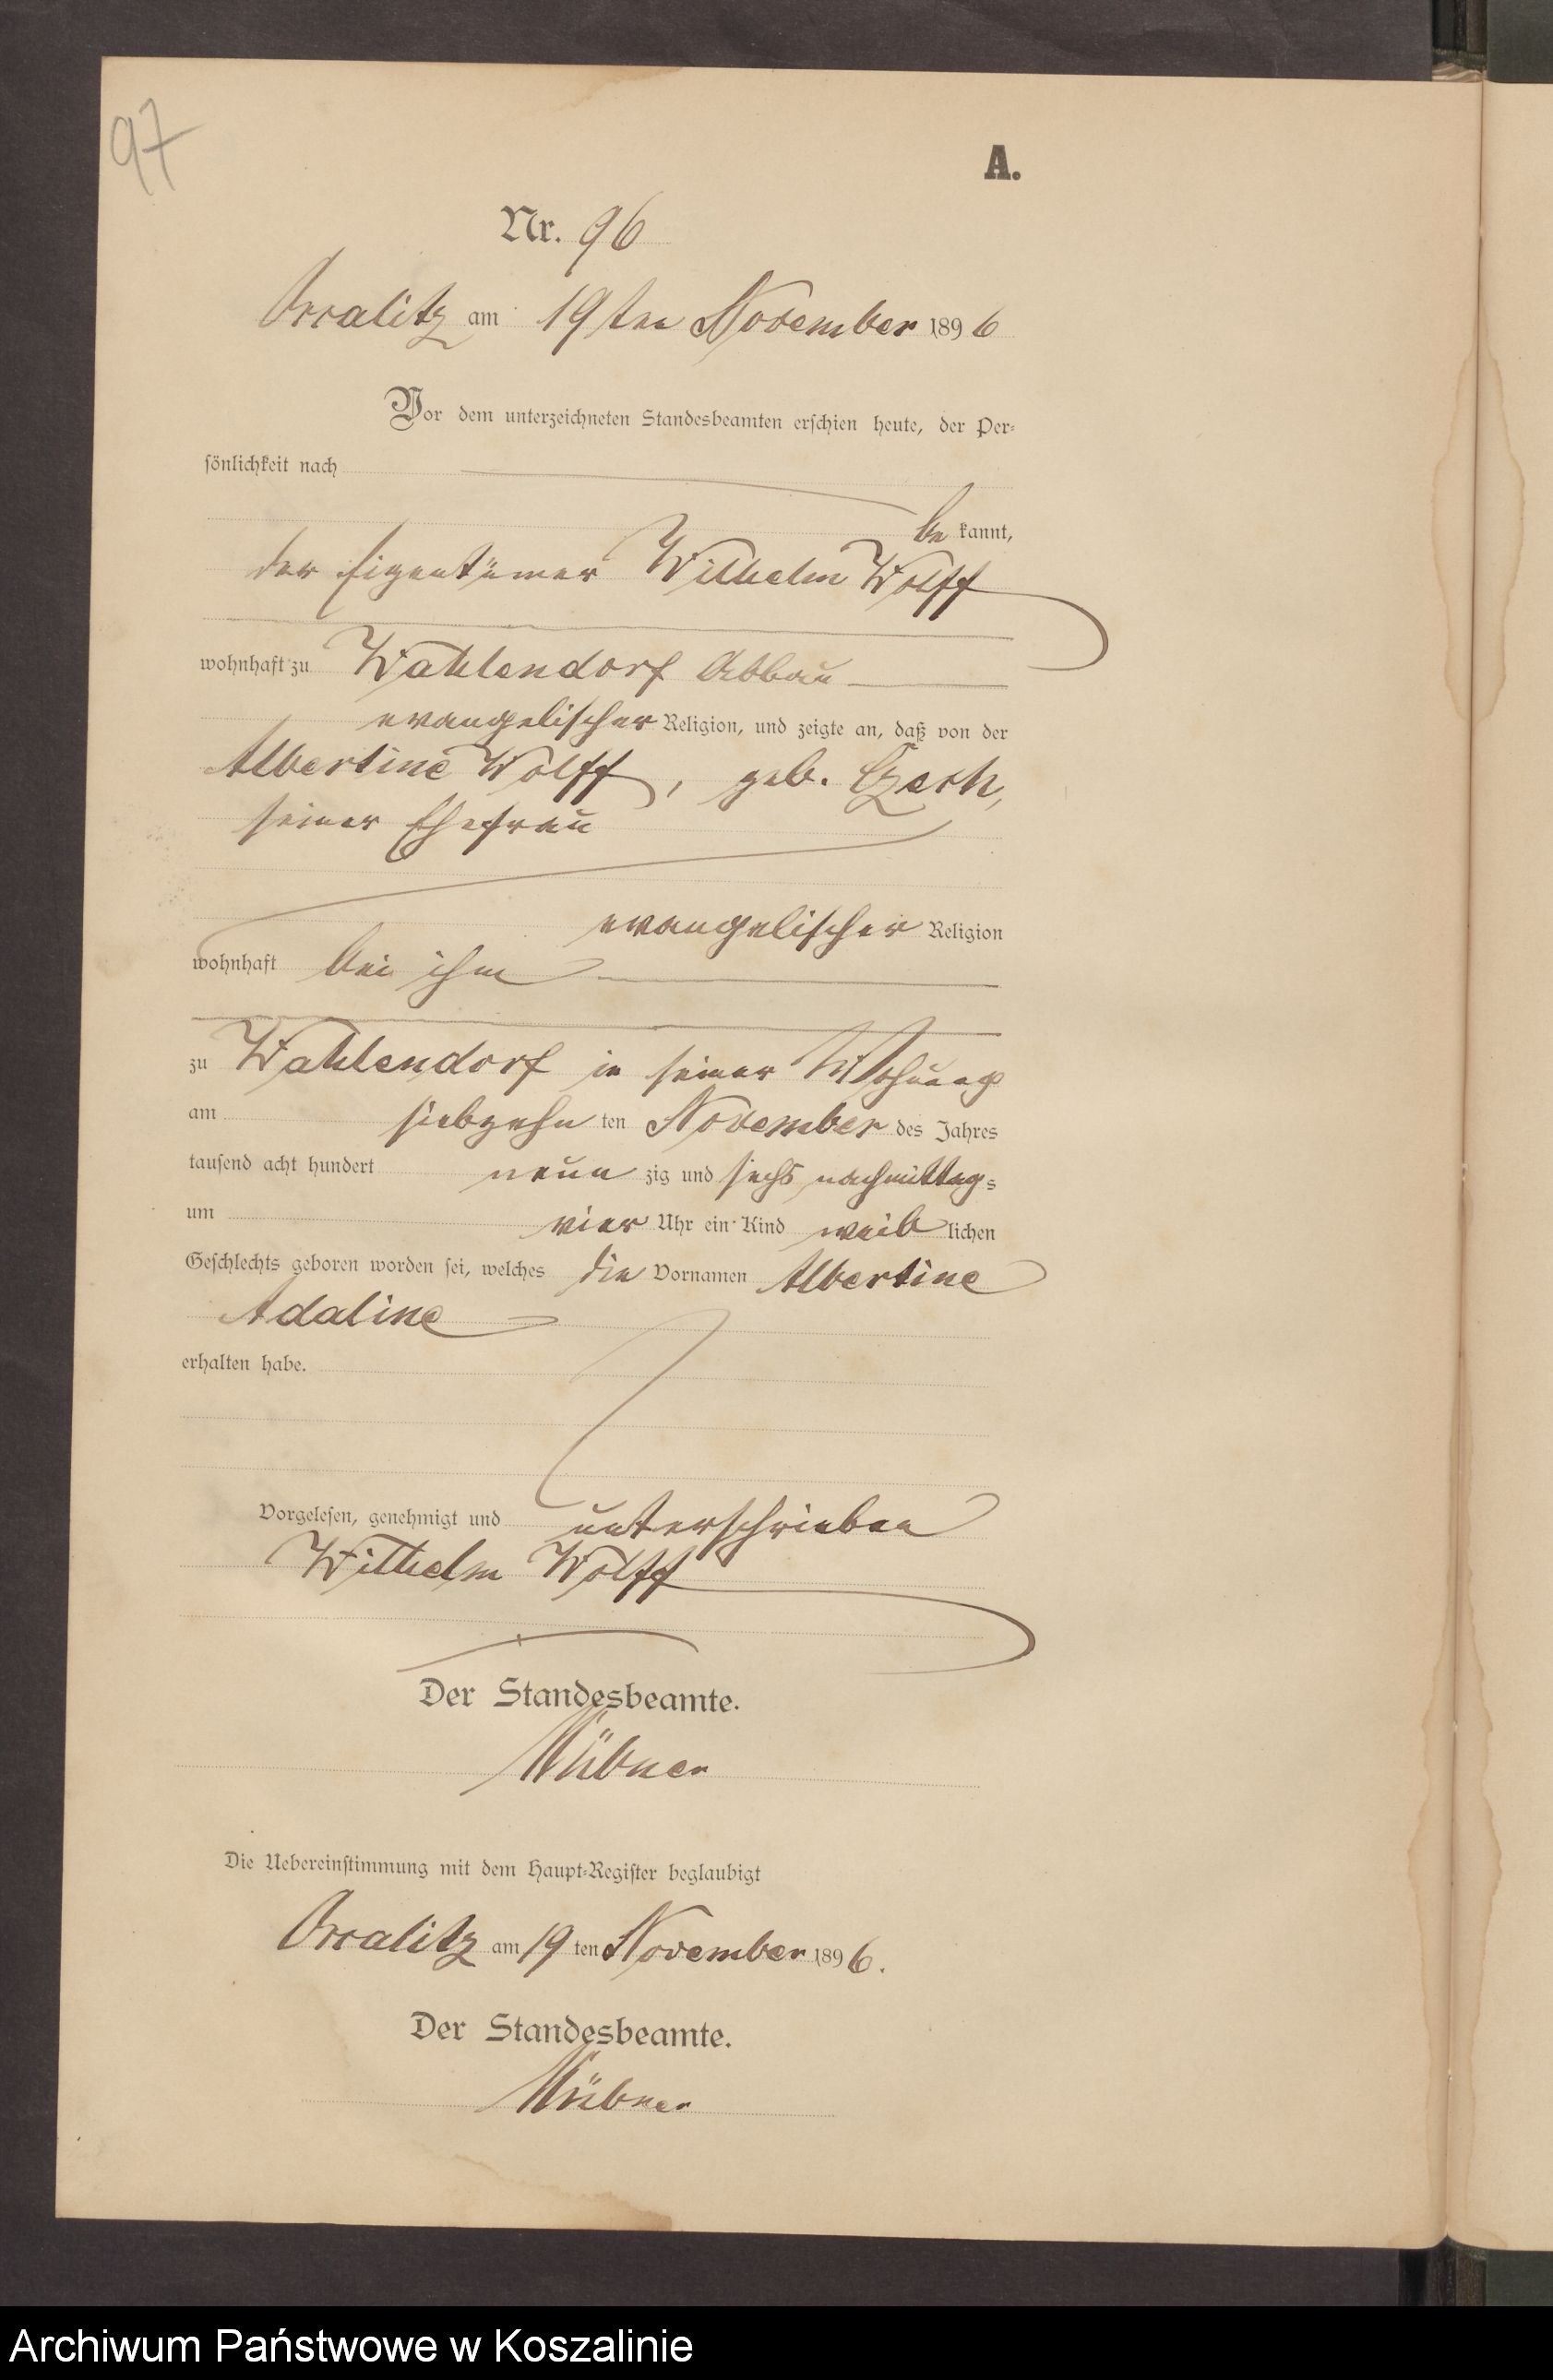 97
A.
Nr. 96
am 19ten November 1896
Vor dem unterzeichneten Standesbeamten erschien heute, der Per-
sönlichkeit nach
be kannt,
der Eigentümer Wilhelm Wolff
wohnhaft zu Wahlendorf Abbau
evangelischer Religion, und zeigte an, daß von der
Albertine Wolff, geb.
seiner Ehefrau
evangelischer Religion
wohnhaft bei ihm
zu Wahlendorf in seiner Wohnung
am siebzehn ten November des Jahres
tausend acht hundert neun zig und sechs nachmittags
um vier Uhr ein Kind weib lichen
Geschlechts geboren worden sei, welches die Vornamen Albertine
Adaline
erhalten habe.
Vorgelesen, genehmigt und unterschrieben
Wilhelm Wolff
Der Standesbeamte.
Die Uebereinstimmung mit dem Haupt-Register beglaubigt
am 19 ten November 1896.
Der Standesbeamte.
Archiwum Państwowe w Koszalinie